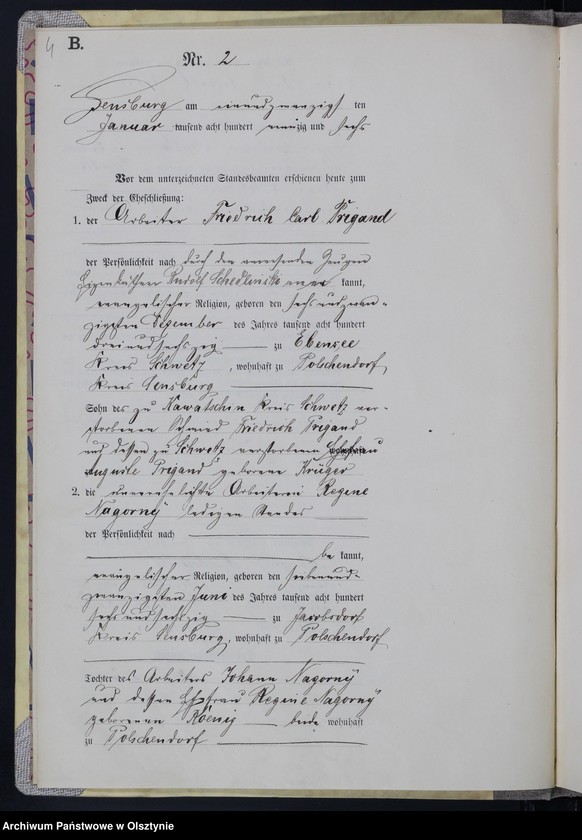 4
B.
Nr. 2
Sensburg am einundzwanzigsten
Januar tausend acht hundert neunzig und sechs
Vor dem unterzeichneten Standesbeamten erschienen heute zum
Zweck der Eheschließung:
1. der Arbeiter Friedrich Carl Prigand
der Persönlichkeit nach durch den anwesenden Zeugen
Rudolf kannt,
evangelischer Religion, geboren den sechsundzwan-
zigsten Dezember des Jahres tausend acht hundert
dreiundsechszig zu Ebensee
Kreis Schwetz, wohnhaft zu Polschendorf,
Kreis Sensburg
Sohn des zu Kawatschin Kreis Schwetz ver-
storbenen Schmied Friedrich Prigand
und dessen zu Schwetz verstorbenen Ehefrau
Auguste Prigand geborene Krüger
2. die unverehelichte Arbeiterin Regine
Nagorny ledigen Standes
der Persönlichkeit nach
be kannt,
evangelischer Religion, geboren den siebenund-
zwanzigsten Juni des Jahres tausend acht hundert
sechsundsechszig zu Jacobsdorf
Kreis Sensburg, wohnhaft zu Polschendorf
Tochter des Arbeiters Johann Nagorny
und dessen Ehefrau Regine Nagorny
geborenen Koenig beide wohnhaft
zu Polschendorf
Archiwum Państwowe w Olsztynie